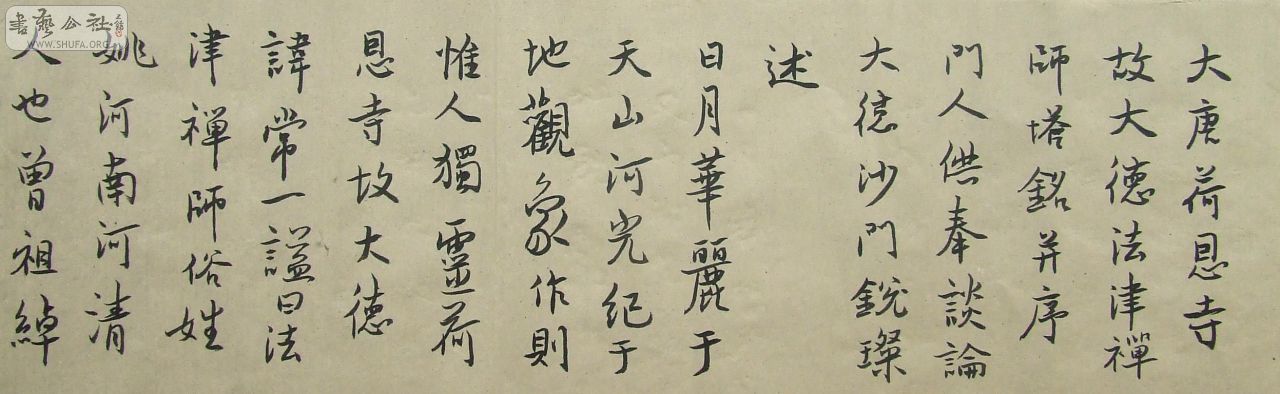 大唐荷恩寺
故大德法津禪
師塔銘并序
門人供奉談論
大德沙門銳璨
述
日月華麗于
天山河光紀于
地觀象作則
惟人獨靈荷
恩寺故大德
諱常一謚曰法
津禪師俗姓
姚河南河清
人也曾祖綽
書藝公社
WWW.SHUFA.ORG